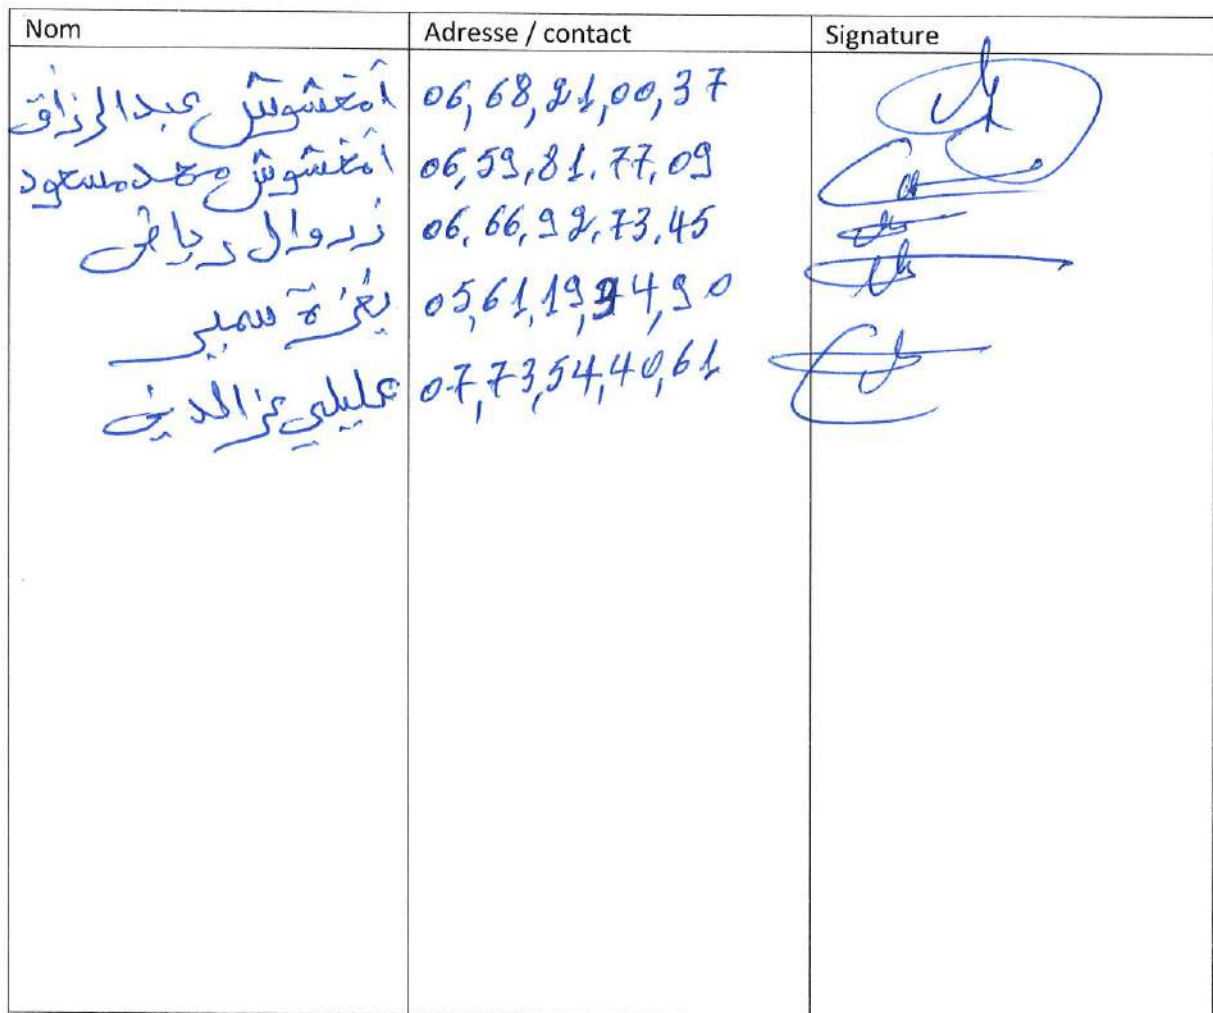 Nom Adresse / contact Signature
أمغشوش عبد الرزاق 06,68,21,00,37
أمغشوش محمد مسعود 06,59,81.77,09
زروال رياض 06,66,92,73,45
يغزة سمير 05,61,19,94,90
عليلي عز الدين 07,73,54,40,61